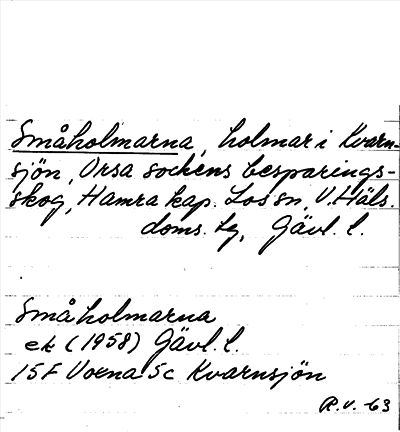 Småholmarna, holmar i Kvarn-
sjön, Orsa sockens besparings-
skog, Hamra kap. Los sn, V. Häls.
doms. tg, Gävl. l.
Småholmarna
ek (1958) Gävl. l.
15F Voxna 5c Kvarnsjön
R.V. -63